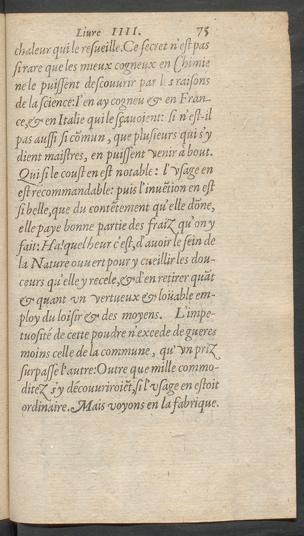 Liure IIII. 75
chaleur qui le resueille. Ce secret n'est pas
si rare que les mieux cogneux en Chimie
ne le puissent descouurir par les raisons
de la science: I'en ay cogneu & en Fran-
ce, & en Italie qui le sçauoient: si n'est-il
pas aussi si cõmun, que plusieurs qui s'y
dient maistres, en puissent venir à bout.
Qui si le coust en est notable: l'vsage en
est recommandable: puis l'inuẽtion en est
si belle, que du contẽtement qu'elle dõne,
elle paye bonne partie des fraiz qu'on y
fait: Ha! quel heur c'est, d'auoir le sein de
la Nature ouuert pour y cueillir les dou-
ceurs qu'elle y recele, & d'en retirer quãt
& quant vn vertueux & loüable em-
ploy du loisir & des moyens. L'impe-
tuosité de cette poudre n'excede de gueres
moins celle de la commune, qu'vn priz
surpasse l'autre: Outre que mille commo-
ditez s'y découuriroiẽt, si l'vsage en estoit
ordinaire. Mais voyons en la fabrique.